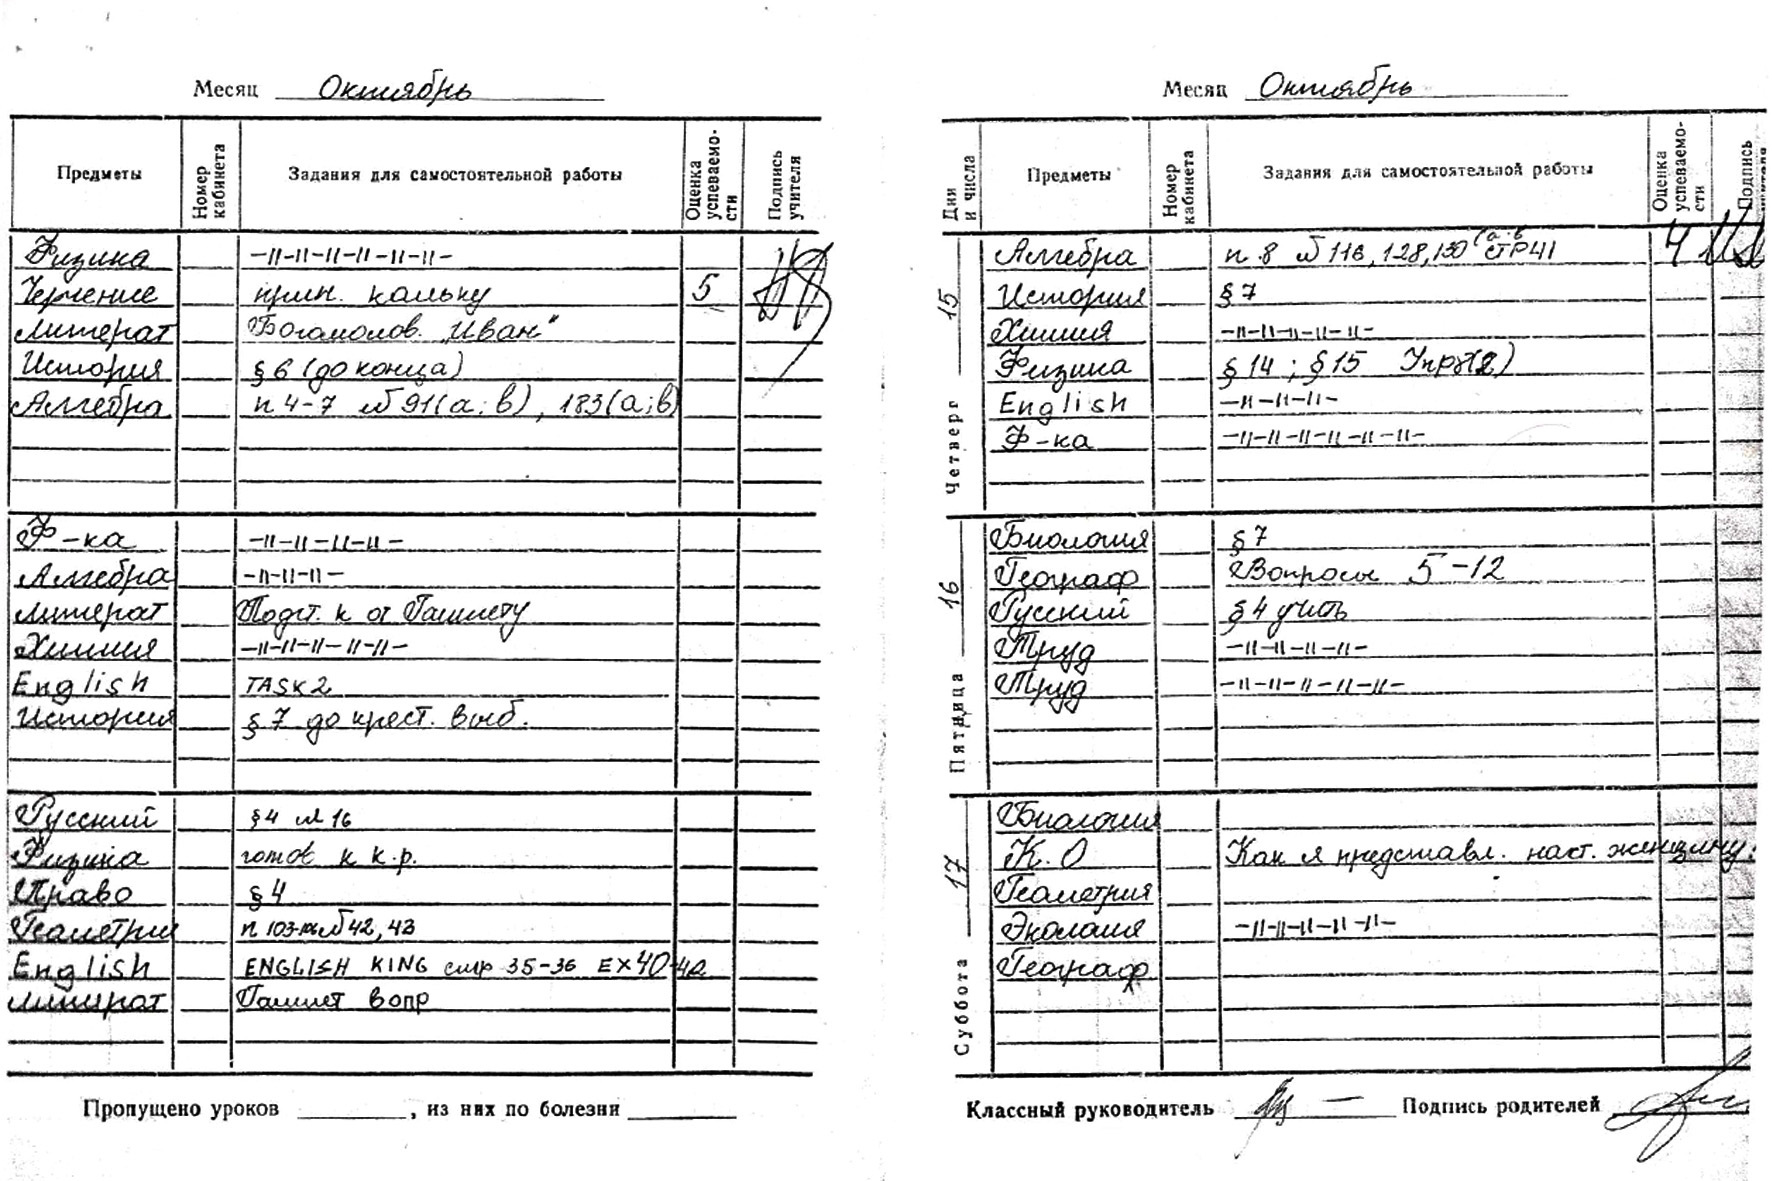 Месяц Октябрь
Предметы Номер кабинета Задания для самостоятельной работы Оценка успеваемо-сти Подпись учителя
Физика –11–11–11–11–11–11–
Черчение прин. кальку 5
Литерат Богомолов. „Иван"
История § 6 (до конца)
Алгебра п 4-7 № 91(а; в), 183(а;в)
Ф-ка –11–11–11–11–
Алгебра –11–11–11–
Литерат Подгт. к Гамлету
Химия –11–11–11–11–11–
English TASK 2
История § 7 до крест. вынб.
Русский § 4 № 16
Физика готов к к.р.
Право § 4
Геометрия п 103 № 42, 43
English ENGLISH KING стр 35-36 EX 40-42
Литерат Гамлет вопр
Пропущено уроков , из них по болезни
Месяц Октябрь
Дни и числа Предметы Номер кабинета Задания для самостоятельной работы Оценка успеваемо-сти Подпись
Четверг 15
Алгебра п. 8 № 116, 128, 130 (а; в СТР 41 4
История § 7
Химия –11–11–11–11–11–
Физика § 14 ; § 15 Упр
English –11–11–11–
Ф-ка –11–11–11–11–11–11–
Пятница 16
Биология § 7
Географ Вопросы 5-12
Русский § 4 учить
Труд –11–11–11–11–
Труд –11–11–11–11–11–
Суббота 17
Биология
К. О Как я представл. наст. женщину.
Геометрия
Экология –11–11–11–11–11–
Географ
Классный руководитель Подпись родителей